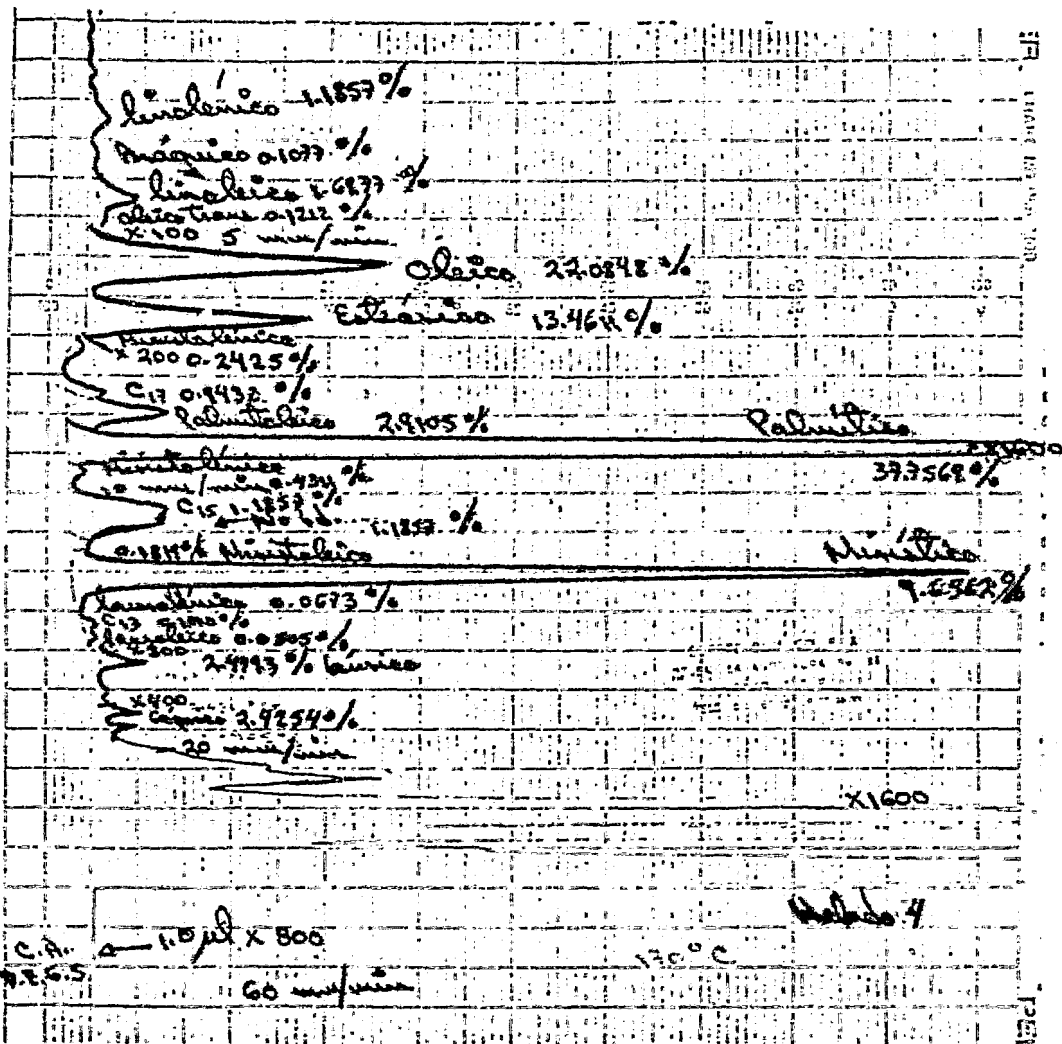 linolénico 1.1857 %
Aráquico 0.1077 %
linoleico 1.6877 %
oleico trans 0.1212 %
X 100 5 mm/min
Oleico 22.0848 %
Esteárico 13.4611 %
x 200 0.2425 %
C17 0.9432 %
Palmitoleico 2.9105 %
Palmítico
x 1600
37.7568 %
10 mm/min 0.4311 %
C15 1.1857 %
No id. 1.1857 %
0.1811 % Miristoleico
Mirístico
9.6562 %
laurolénico 0.0673 %
C13
lauroleico 0.0505 %
2.4993 % láurico
x 400
Cáprico 2.4254 %
20 mm/min
X1600
Helado 4
C.A.
1.0 µl x 800
170° C
60 mm/min